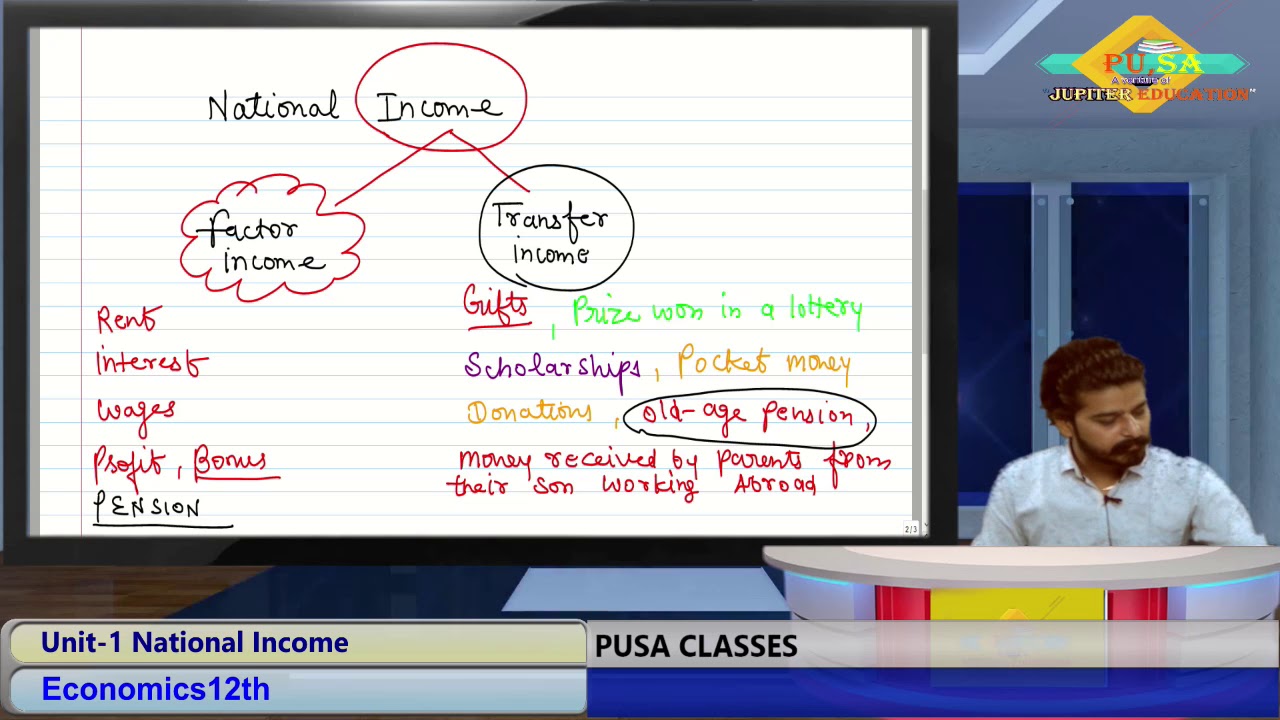 National Income
Factor
income
Transfer
income
Rent
Interest
Wages
Profit, Bonus
PENSION
Gifts, Prize won in a lottery
Scholarships, Pocket money
Donations, old-age pension,
money received by parents from
their son working Abroad
2/3
PU.SA
A venture of
"JUPITER EDUCATION"
Unit-1 National Income
PUSA CLASSES
Economics12th